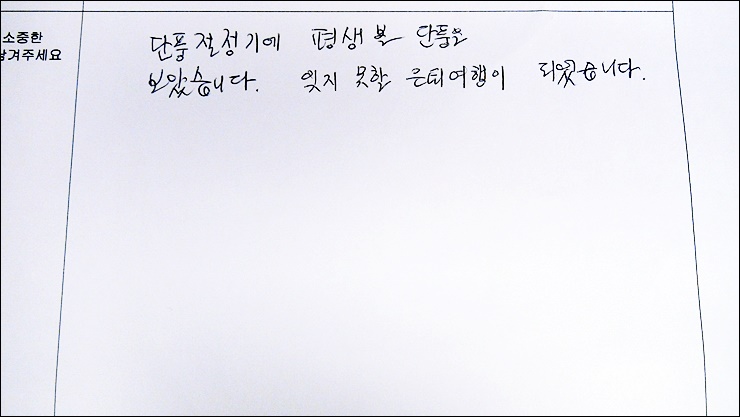 소중한
남겨주세요
단풍절정기에 평생 볼 단풍을
보았습니다. 잊지 못할 은퇴여행이 되었습니다.